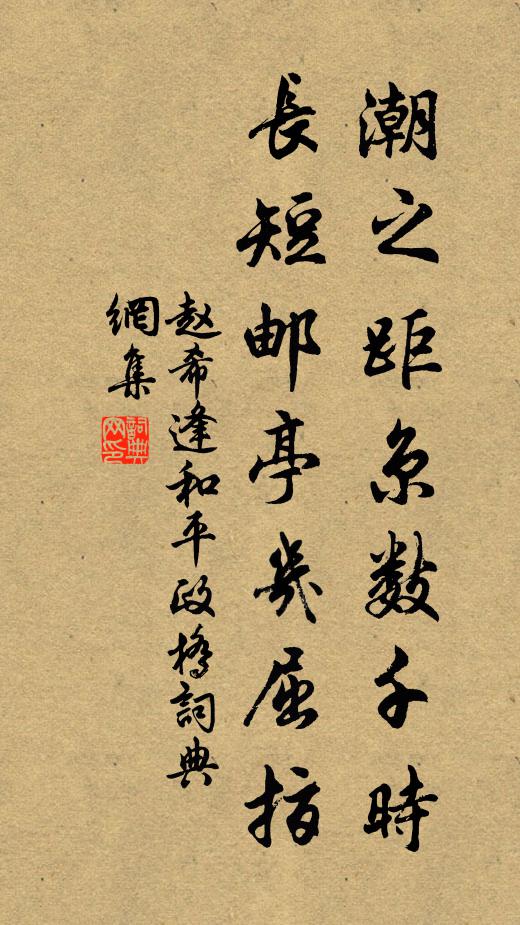 潮之距京數千時
長短邮亭幾屈指
赵希逢和平政橋詞典
網集
詞典
网印